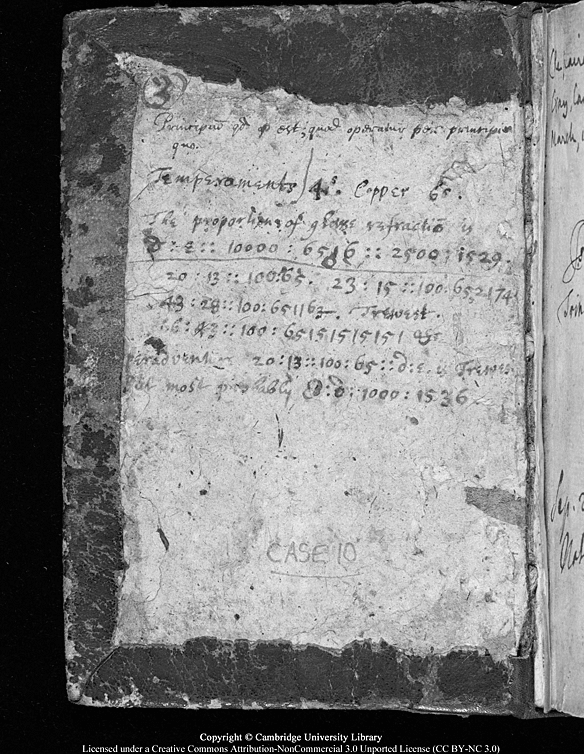 3
Principium qd est; quod operatur per principia
quo.
Temperaments 4s. Copper 6s.
The proportione of glasse refractiō is
d : e :: 10000 : 6516 :: 2500 : 1529.
20 : 13 :: 100 : 65. 23 : 15 :: 100 : 65,2174
43 : 28 :: 100 : 651163. Trewest.
66 : 43 :: 100 : 65151515151 &c
peradventure 20 : 13 :: 100 : 65 :: d : e. is Trewes
but most probably d : d : 1000 : 1536
CASE 10
Copyright © Cambridge University Library
Licensed under a Creative Commons Attribution-NonCommercial 3.0 Unported License (CC BY-NC 3.0)